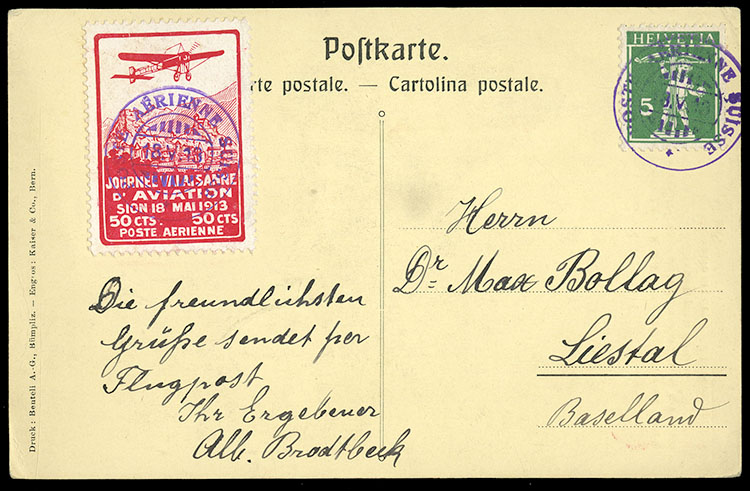 Postkarte.
rte postale. — Cartolina postale.
JOURNÉE VALAISANNE
D'AVIATION
SION 18 MAI 1913
50 CTS. 50 CTS
POSTE AERIENNE
AÉRIENNE
18.V.13
HELVETIA
5
POSTE AÉRIENNE SUISSE
Herrn
Dr. Max Bollag
Liestal
Baselland
Die freundlichsten
Grüße sendet per
Flugpost
Ihr Ergebener
Alb. Brodtbeck
Druck: Benteli A.-G., Bümpliz. — Engros: Kaiser & Co., Bern.